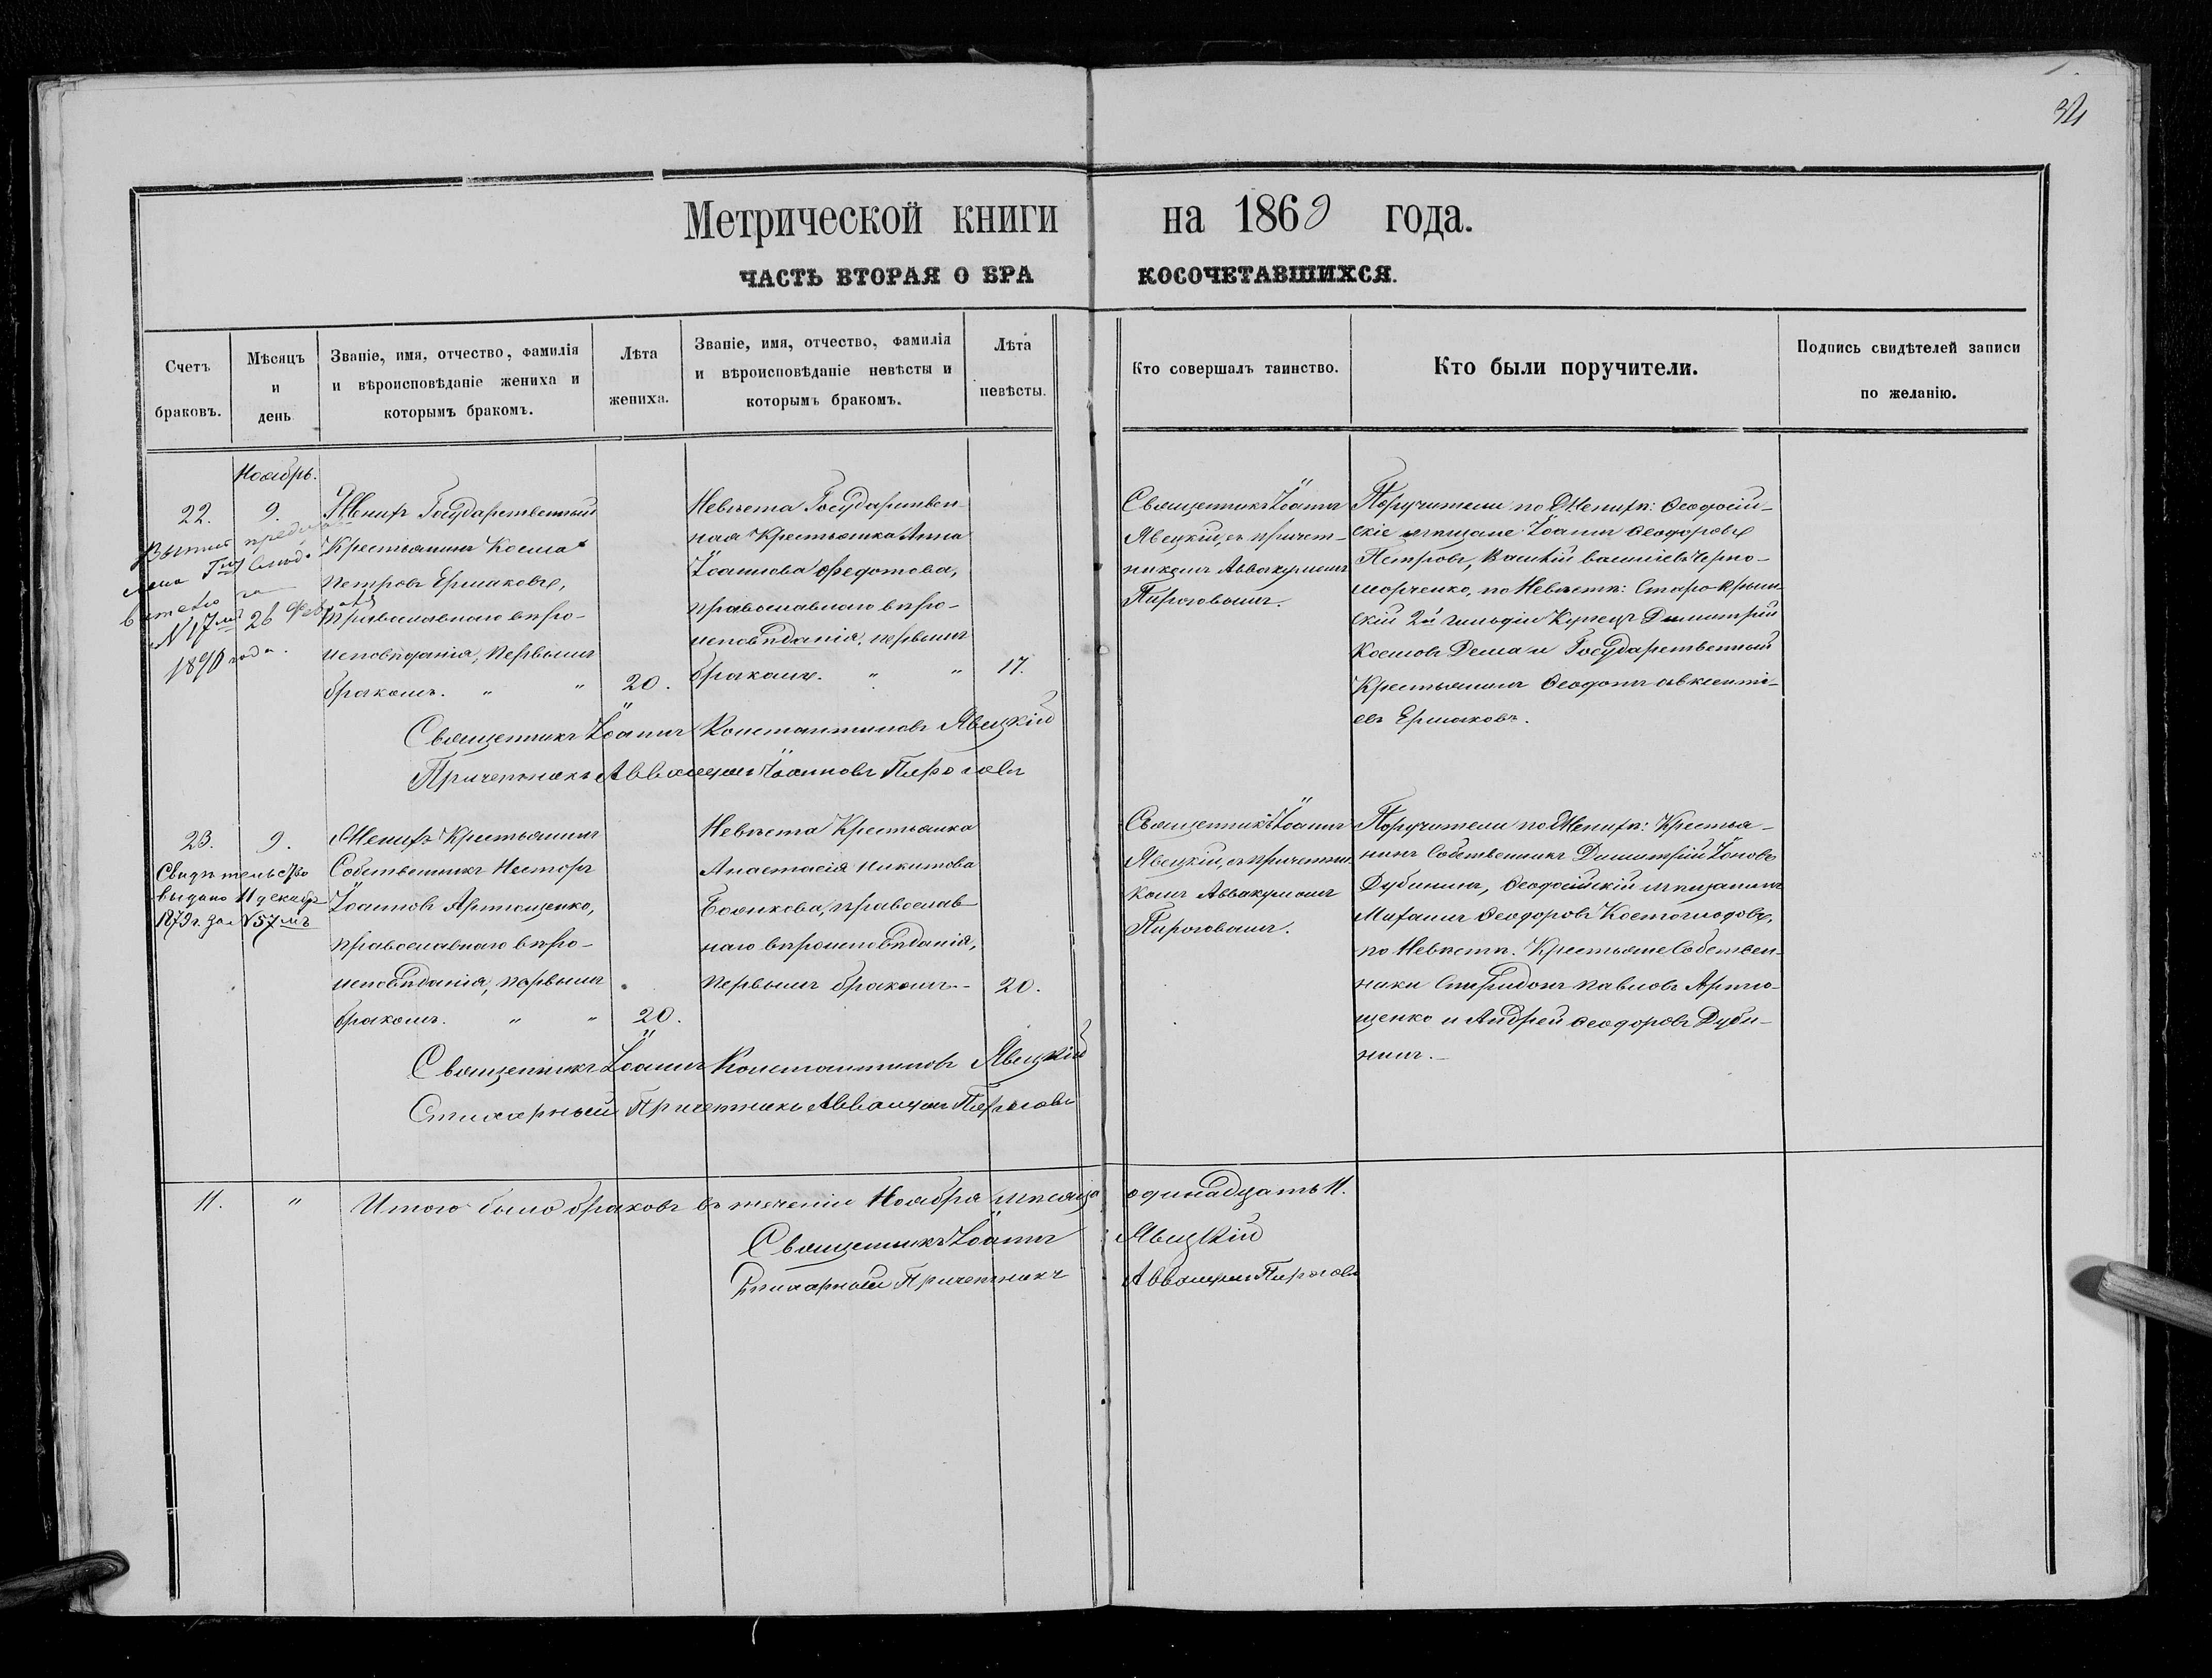 34
Метрической книги на 1869 года.
ЧАСТЬ ВТОРАЯ О БРАКОСОЧЕТАВШИХСЯ.
Счетъ браковъ.
Мѣсяцъ и день
Званіе, имя, отчество, фамилія и вѣроисповѣданіе жениха и которымъ бракомъ.
Лѣта жениха.
Званіе, имя, отчество, фамилія и вѣроисповѣданіе невѣсты и которымъ бракомъ.
Лѣта невѣсты.
Кто совершалъ таинство.
Кто были поручители.
Подпись свидѣтелей записи по желанію.
Ноябрь.
22.
9.
№ 17мъ 26 Февраля
1890 года.
Женихъ Государственный
Крестьянинъ Косма
Петровъ Ермаковъ,
православнаго вѣро-
исповѣданія, первымъ
бракомъ. " "
20.
Невѣста Государствен-
ная Крестьянка Анна
Іоаннова Федотова,
православнаго вѣро-
исповѣданія, первымъ
бракомъ. " "
17.
Священникъ Іоаннъ
Явецкій, съ причет-
никомъ Аввакумомъ
Пироговымъ.
Поручители по Женихѣ: Ѳеодосій-
скіе мѣщане Іоаннъ Ѳеодоровъ
Петровъ, Василій Василіевъ Черно-
морченко, по Невѣстѣ: Старо-Крым-
скій 2й гильдіи Купецъ Димитрій
Космовъ Дема и Государственный
Крестьянинъ Ѳеодотъ Авксенті-
евъ Ермаковъ.
Священникъ Іоаннъ Константиновъ Явецкій
Причетникъ Аввакумъ Іоанновъ Пироговъ
23.
9.
Свидѣтельство
выдано 11 декабр
1879 г. за №57мъ
Женихъ Крестьянинъ
Собственникъ Несторъ
Іоанновъ Артющенко,
православнаго вѣро-
исповѣданія, первымъ
бракомъ. " "
20.
Невѣста Крестьянка
Анастасія Никитова
Бойкова, православ-
наго вѣроисповѣданія,
первымъ бракомъ-
20.
Священникъ Іоаннъ
Явецкій, съ причетни-
комъ Аввакумомъ
Пироговымъ.
Поручители по Женихѣ: Крестья-
нинъ Собственникъ Димитрій Іоновъ
Дубининъ, Ѳеодосійскій мѣщанинъ
Михаилъ Ѳеодоровъ Костоглодовъ,
по Невѣстѣ. Крестьяне Собствен-
ники Спиридонъ Павловъ Артю-
щенко и Андрей Ѳеодоровъ Дуби-
нинъ.-
Священникъ Іоаннъ Константиновъ Явецкій
Стихарный Причетникъ Аввакумъ Пироговъ
11. " Итого было браковъ въ теченіи Ноября мѣсяца одинадцать 11.
Священникъ Іоаннъ Явецкій
Стихарный Причетникъ Аввакумъ Пироговъ